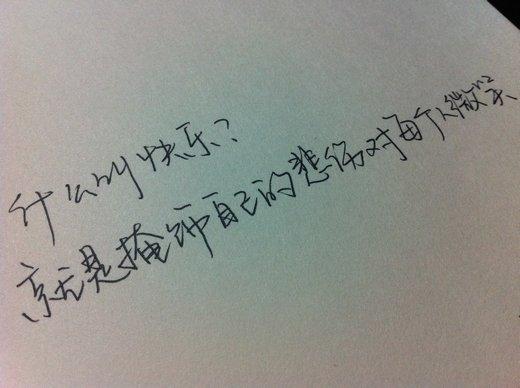 什么叫快乐?
就是掩饰自己的悲伤对每个人微笑